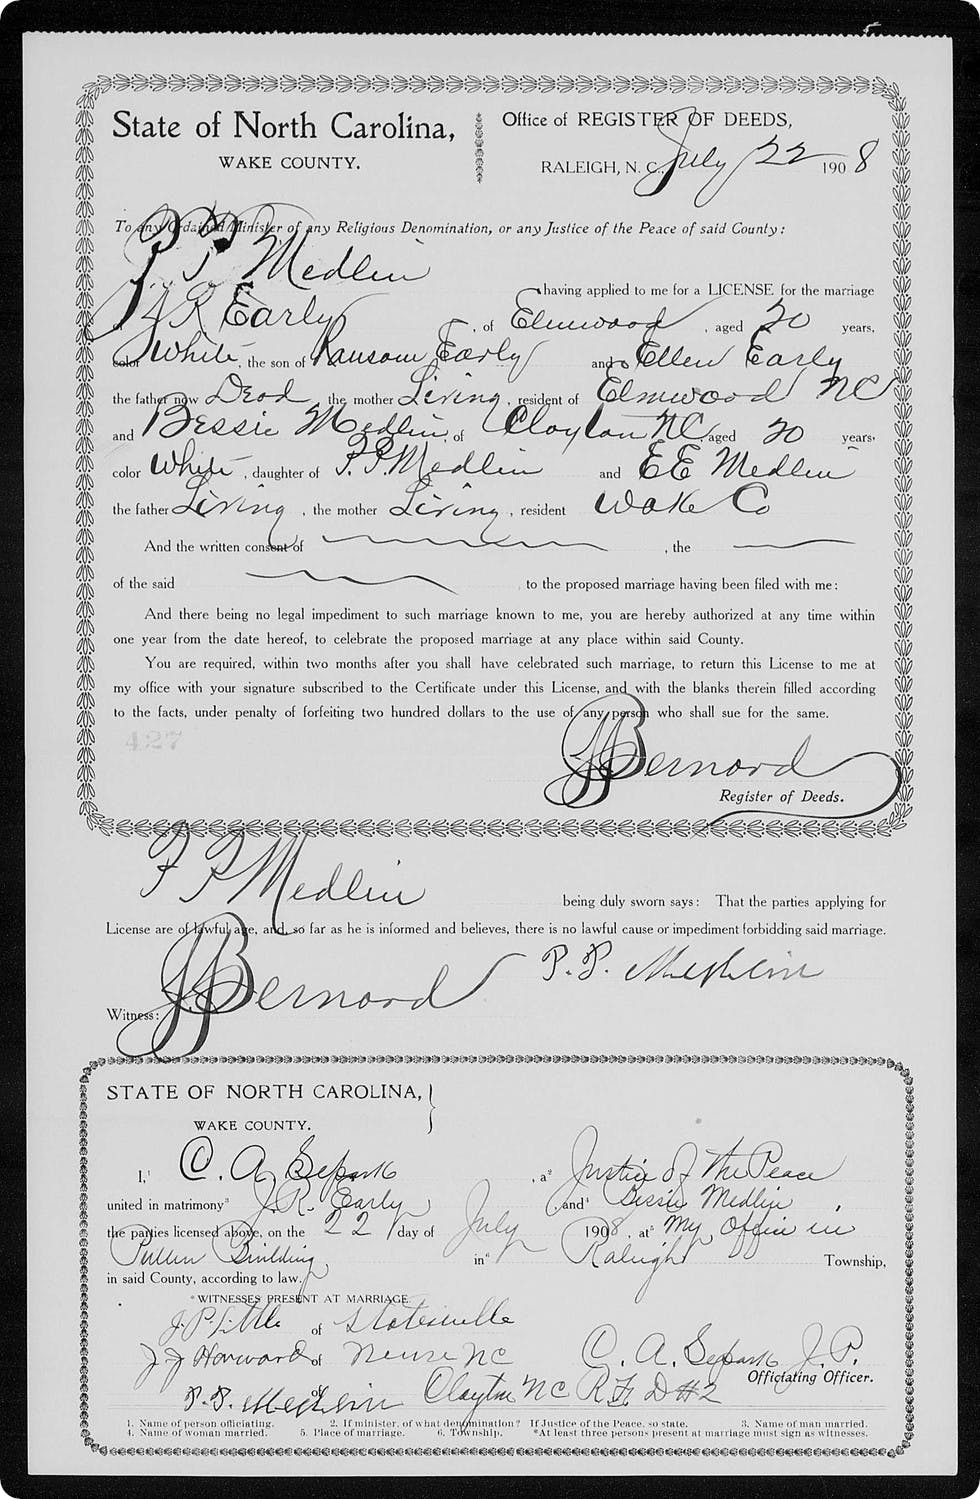 State of North Carolina,
WAKE COUNTY.
Office of REGISTER OF DEEDS,
RALEIGH, N. C. July 22 1908
To any Ordained Minister of any Religious Denomination, or any Justice of the Peace of said County:
P P Medlin having applied to me for a LICENSE for the marriage
of J R Early, of Elmwood, aged 20 years,
color White, the son of Ransom Early and Ellen Early
the father now Dead, the mother Living, resident of Elmwood NC
and Bessie Medlin, of Clayton NC aged 20 years,
color White, daughter of P. P. Medlin and E E Medlin
the father Living, the mother Living, resident Wake Co
And the written consent of , the
of the said to the proposed marriage having been filed with me:
And there being no legal impediment to such marriage known to me, you are hereby authorized at any time within
one year from the date hereof, to celebrate the proposed marriage at any place within said County.
You are required, within two months after you shall have celebrated such marriage, to return this License to me at
my office with your signature subscribed to the Certificate under this License, and with the blanks therein filled according
to the facts, under penalty of forfeiting two hundred dollars to the use of any person who shall sue for the same.
427
J J Bernard
Register of Deeds.
P P Medlin being duly sworn says: That the parties applying for
License are of lawful age, and, so far as he is informed and believes, there is no lawful cause or impediment forbidding said marriage.
P. P. Medlin
Witness: J J Bernard
STATE OF NORTH CAROLINA,
WAKE COUNTY.
I,¹ C. A. Separk, a² Justice of the Peace
united in matrimony³ J. R. Early, and⁴ Bessie Medlin,
the parties licensed above, on the 22 day of July 1908, at⁵ My Office in
Pullen Building, in⁶ Raleigh Township,
in said County, according to law.
*WITNESSES PRESENT AT MARRIAGE.
J. P. Little of Statesville
J J of Neuse NC
C. A. Separk J. P.
Officiating Officer.
P. P. Medlin of Clayton NC R F D #2
1. Name of person officiating. 2. If minister, of what denomination? If Justice of the Peace, so state. 3. Name of man married.
4. Name of woman married. 5. Place of marriage. 6. Township. *At least three persons present at marriage must sign as witnesses.